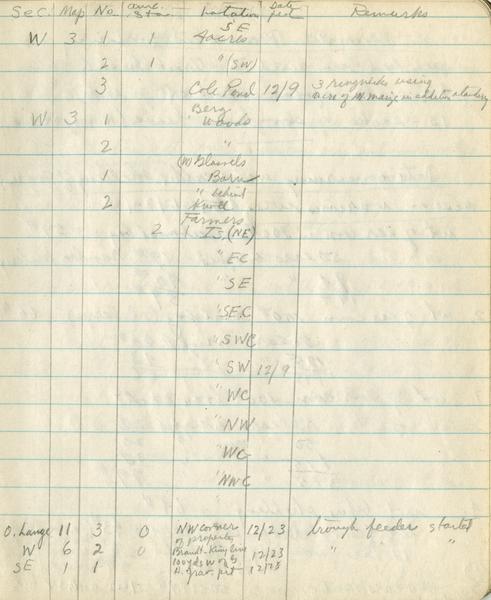 Sec. Map No. Location Date Remarks
SE
W 3 1 1 Acres
2 1 " (SW)
3 Cole Pond 12/9 3 ringnecks using
acre of maize in addition
Berg
W 3 1 " Woods
2 "
(W) Glassels
1 Barn
" behind
2 Knoll
Farmers
2 1 Is, (NE)
" EC
" SE
" SEC
" SWC
" SW 12/9
" WC
" NW
" WC
" NWC
O. Lange 11 3 0 NW corner 12/23 trough feeders started
of property
W 6 2 0 Brandt-King line 12/23 " " "
100 yds W of
SE 1 1 grav. pit 12/23